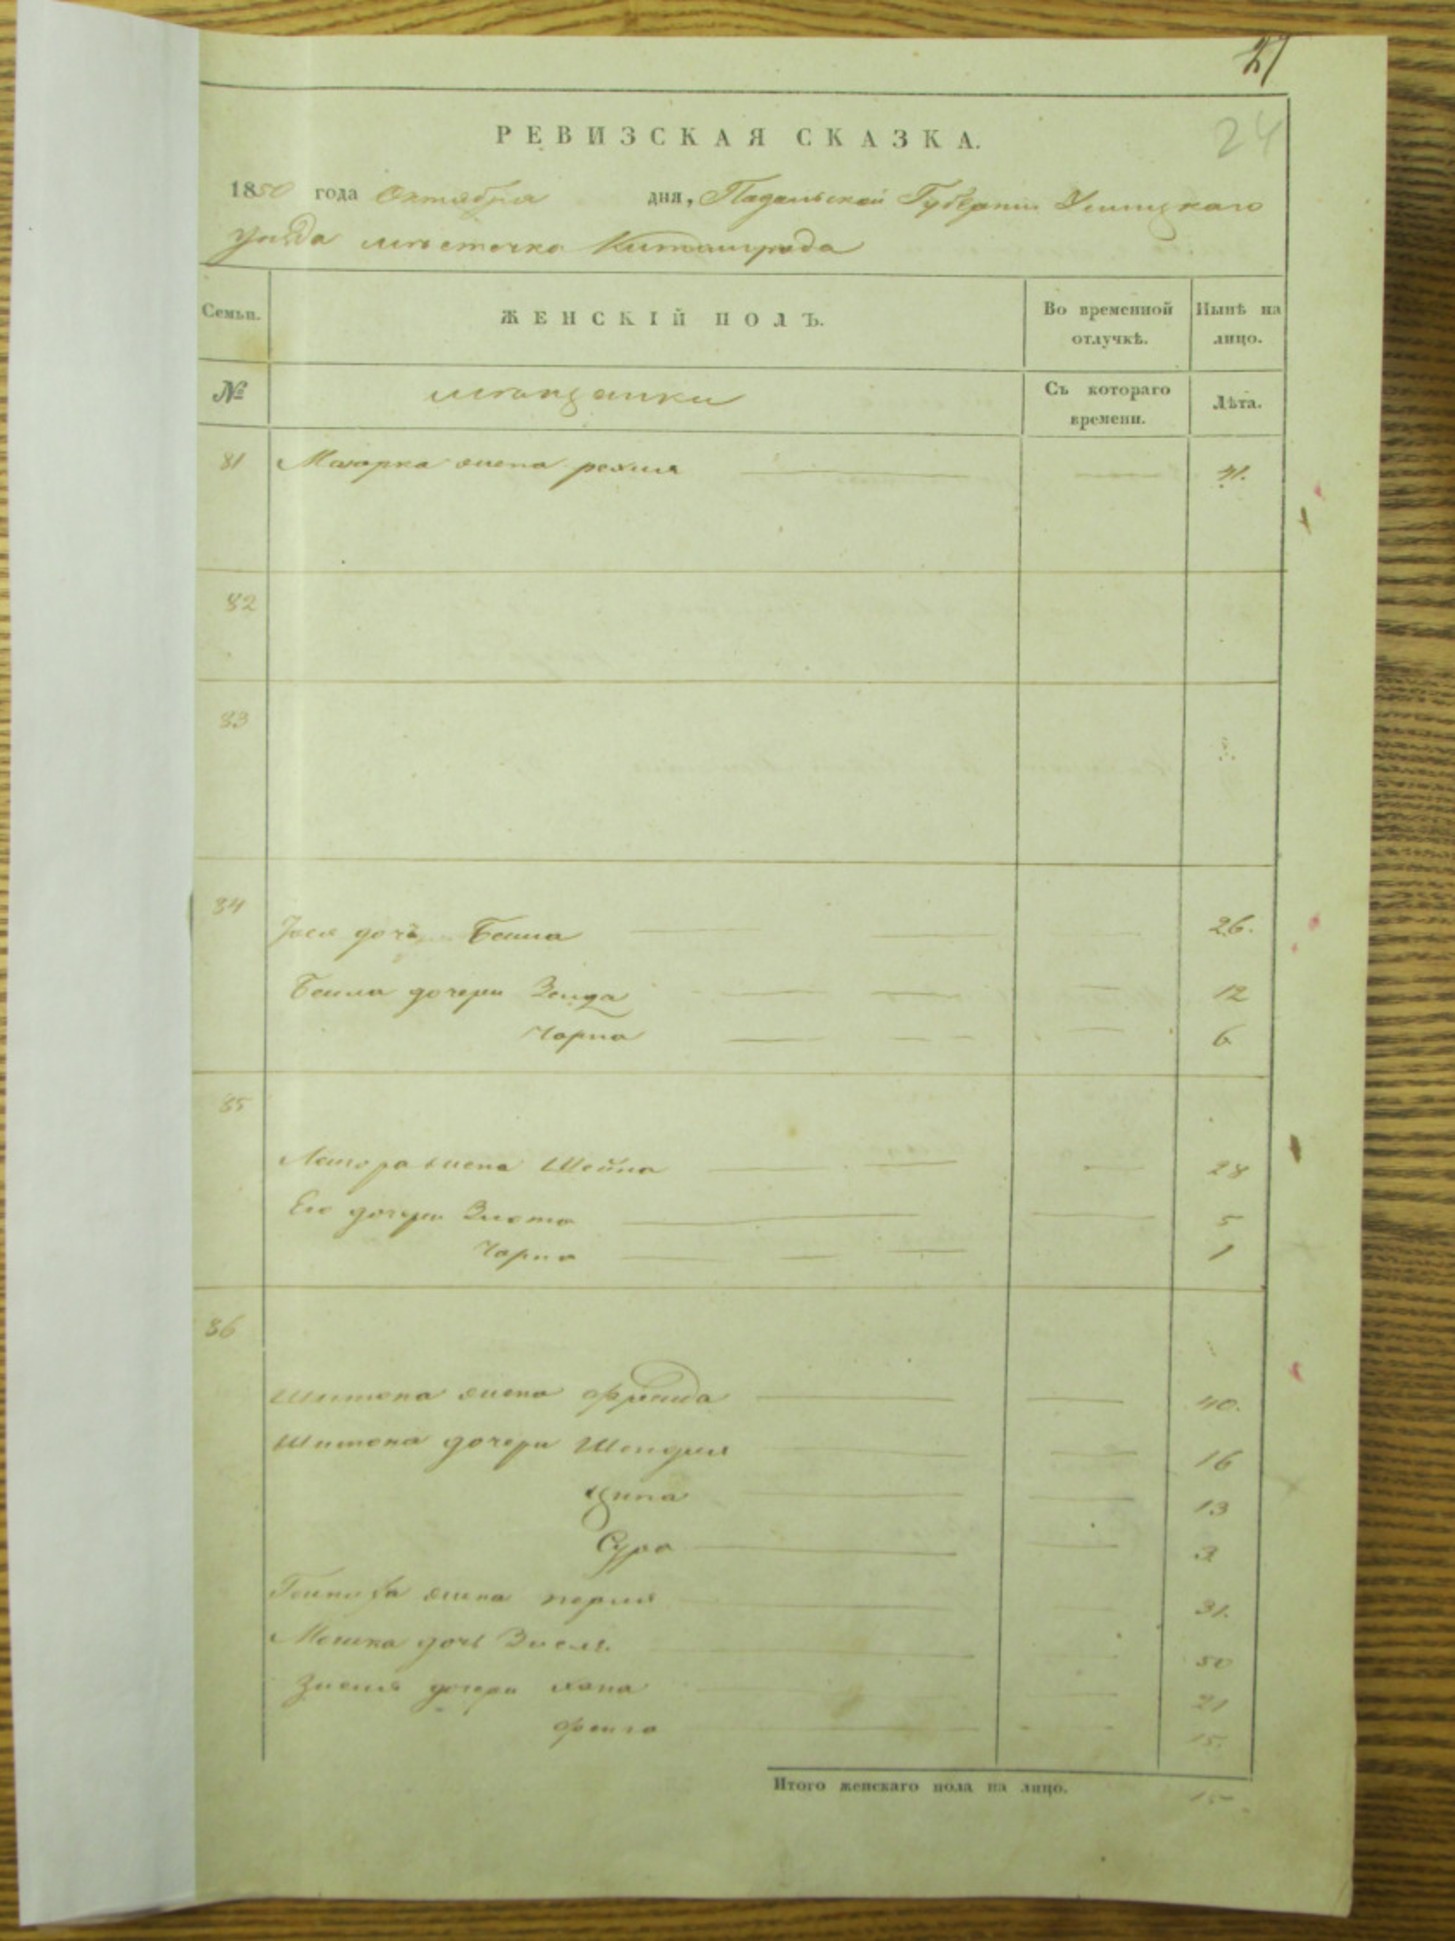 27
24
РЕВИЗСКАЯ СКАЗКА.
1850 года Октября дня, Падольской Губернии Ушицкаго
уезда местечка Китайгрода
Семьи.
ЖЕНСКІЙ ПОЛЪ.
Во временной отлучкѣ.
Нынѣ на лицо.
№
мещанки
Съ котораго времени.
Лѣта.
81 жена рехля 41.
82
83
84
дочь Беила 26.
Беила дочери Зелда 12
Чарна 6
85
жена Шейна 28
Его дочери Злота 5
Чарна 1
86
жена Фрейда 40.
дочери Шендля 16
Ципа 13
Сура 3
жена перля 31.
Мошка дочь Зисля 50
Зисля дочери хана 21
Фейга 15.
Итого женскаго пола на лицо. 15